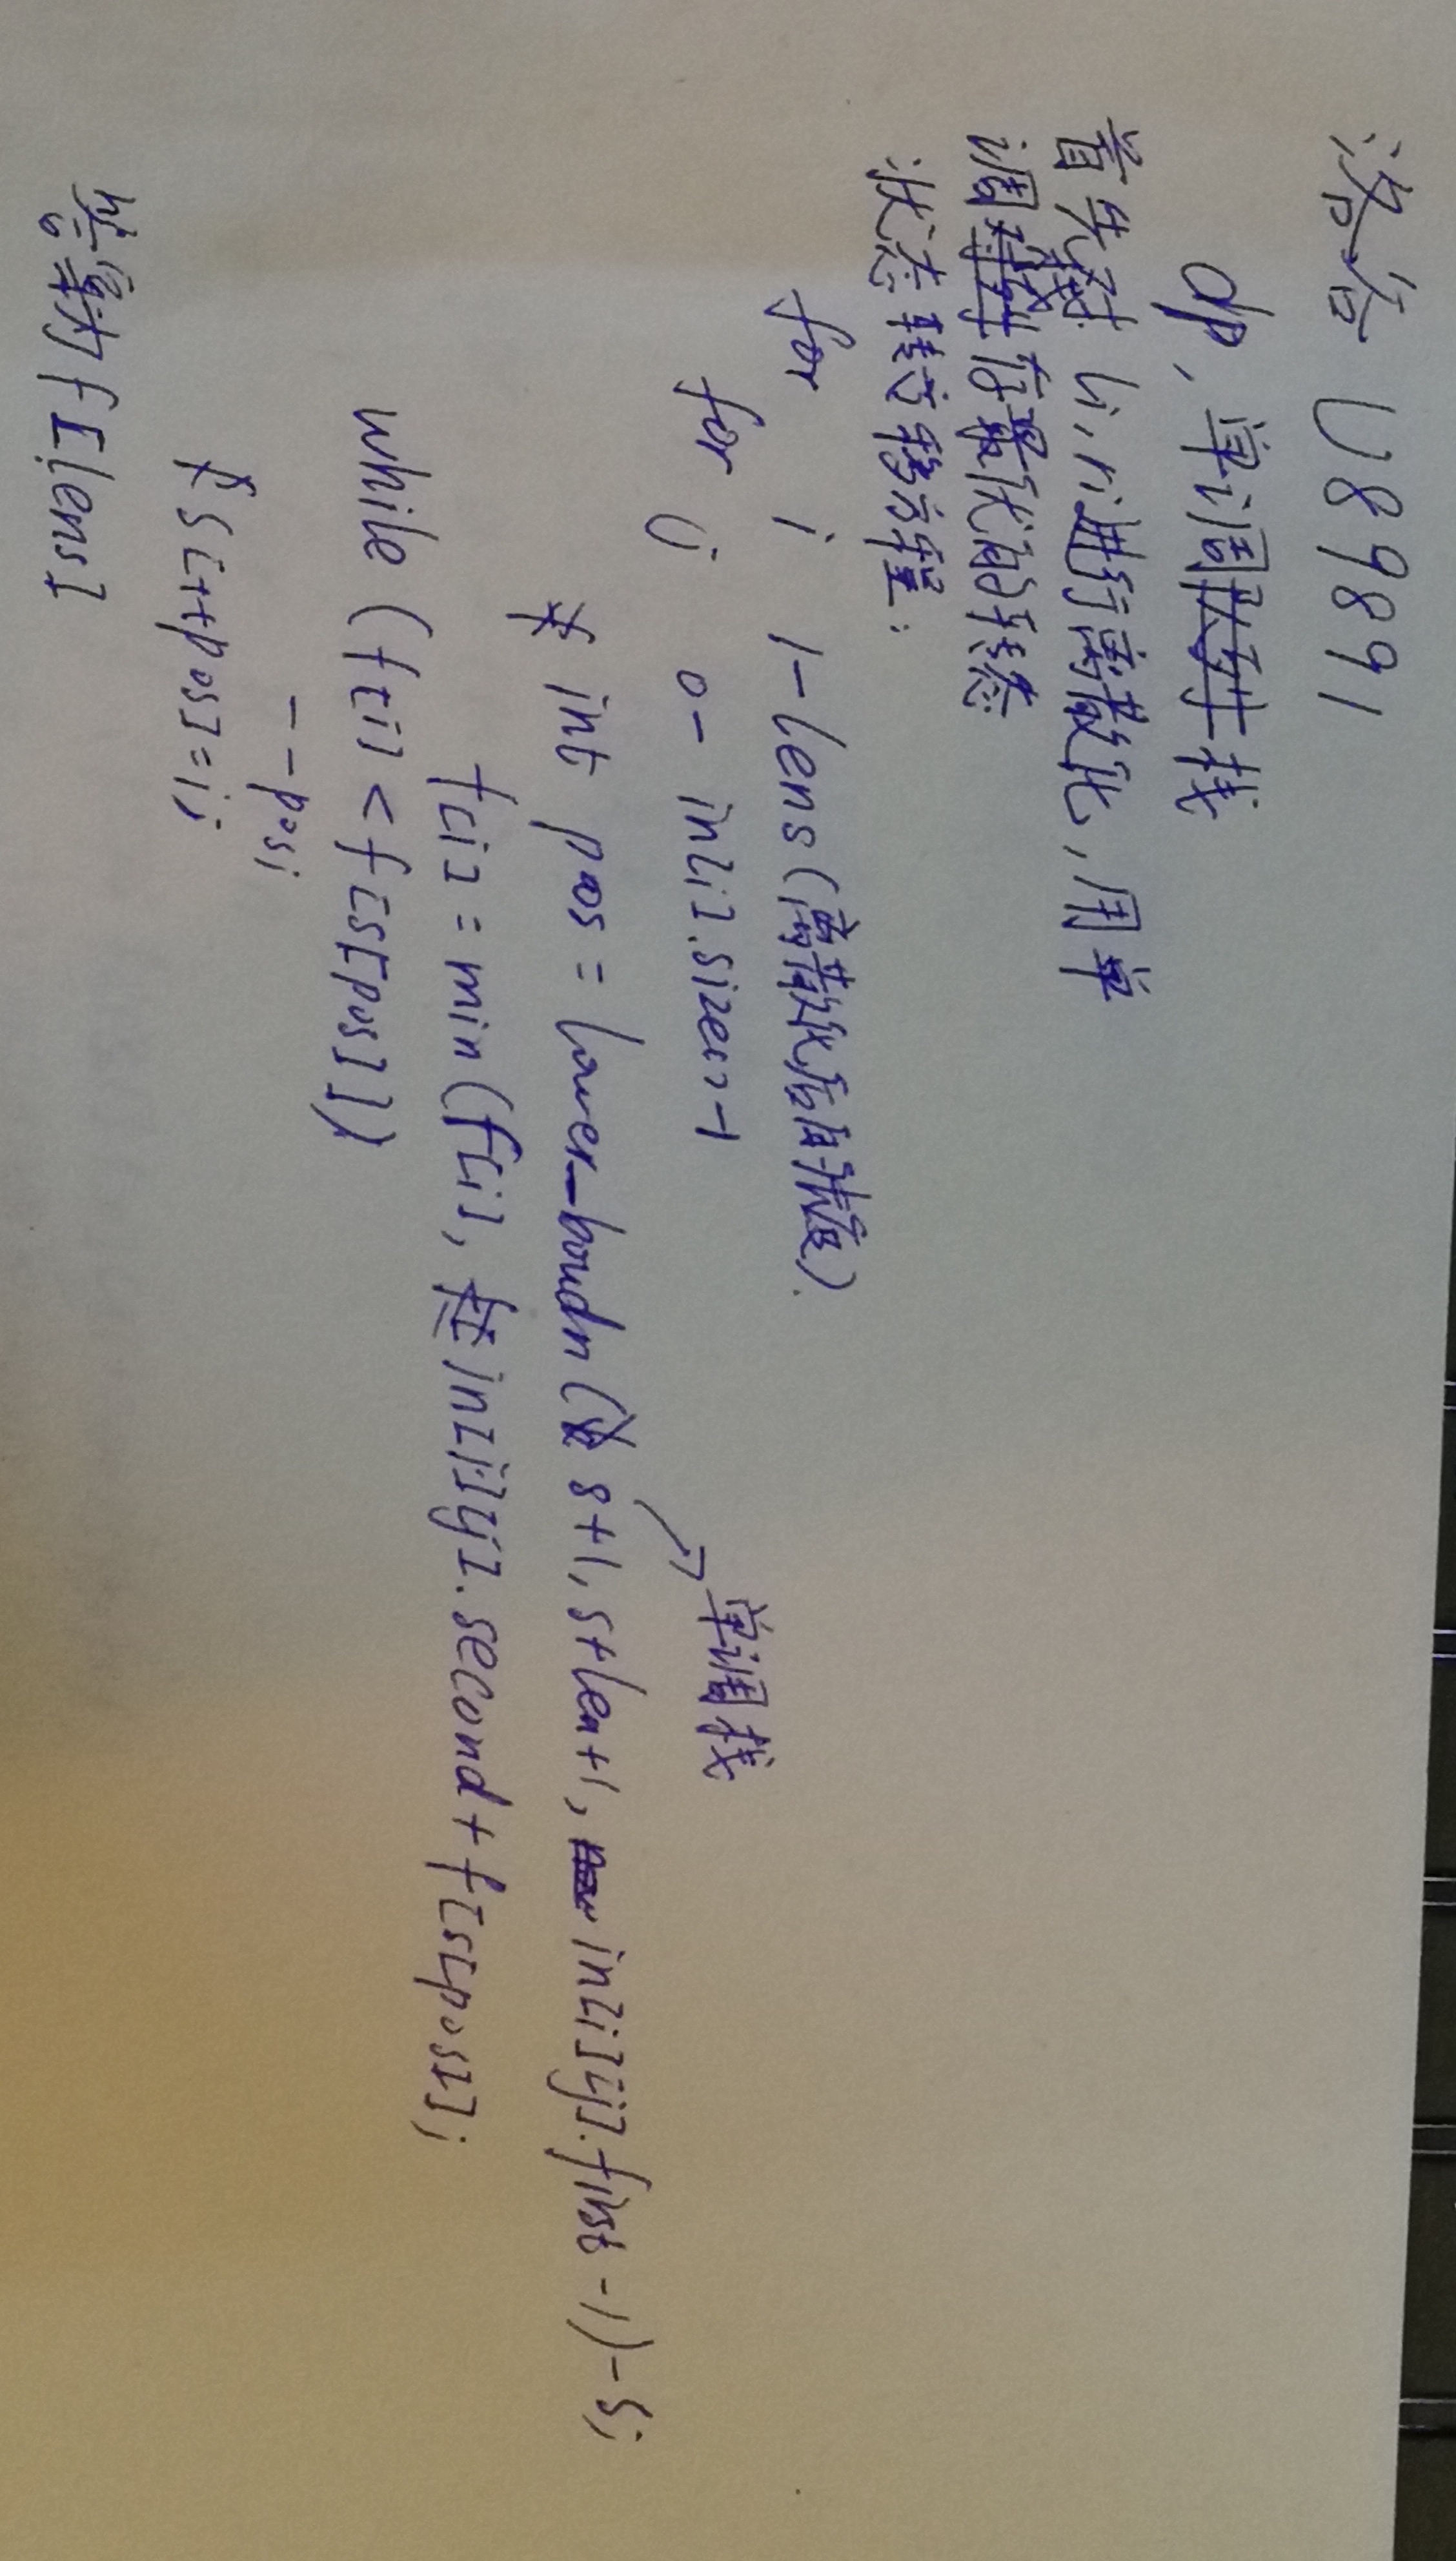 洛谷 U89891
dp,单调栈
首先对 li,ri进行离散化,用单
调栈存最优的转态
状态转移方程:
for i 1-lens(离散化后的长度).
for j 0- in[i].size()-1
单调栈
int pos = lower_boudn(s+1, s+len+1, in[i][j].first -1)-s;
f[i] = min(f[i], in[i][j].second + f[s[pos]];
while (f[i] < f[s[pos]])
--pos;
s[++pos]=i;
答案为f[lens]